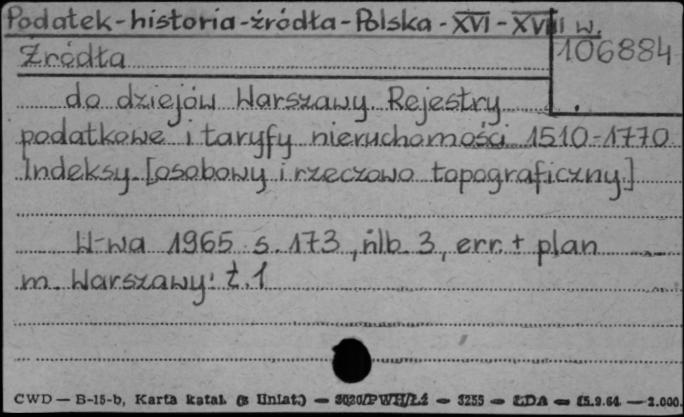 Podatek-historia-źródła-Polska-XVI-XVIII w.
Źródła
106884
do dziejów Warszawy. Rejestry
podatkowe i taryfy nieruchomości 1510-1770
Indeksy. [osobowy i rzeczowo topograficzny.]
W-wa 1965 s. 173, nlb. 3, err. + plan
m. Warszawy: t. 1
CWD — B-15-b, Karta katal. (z Uniat.) — 3020/PWH/Łź — 3255 — ŁDA — 15.9.64 — 2.000.